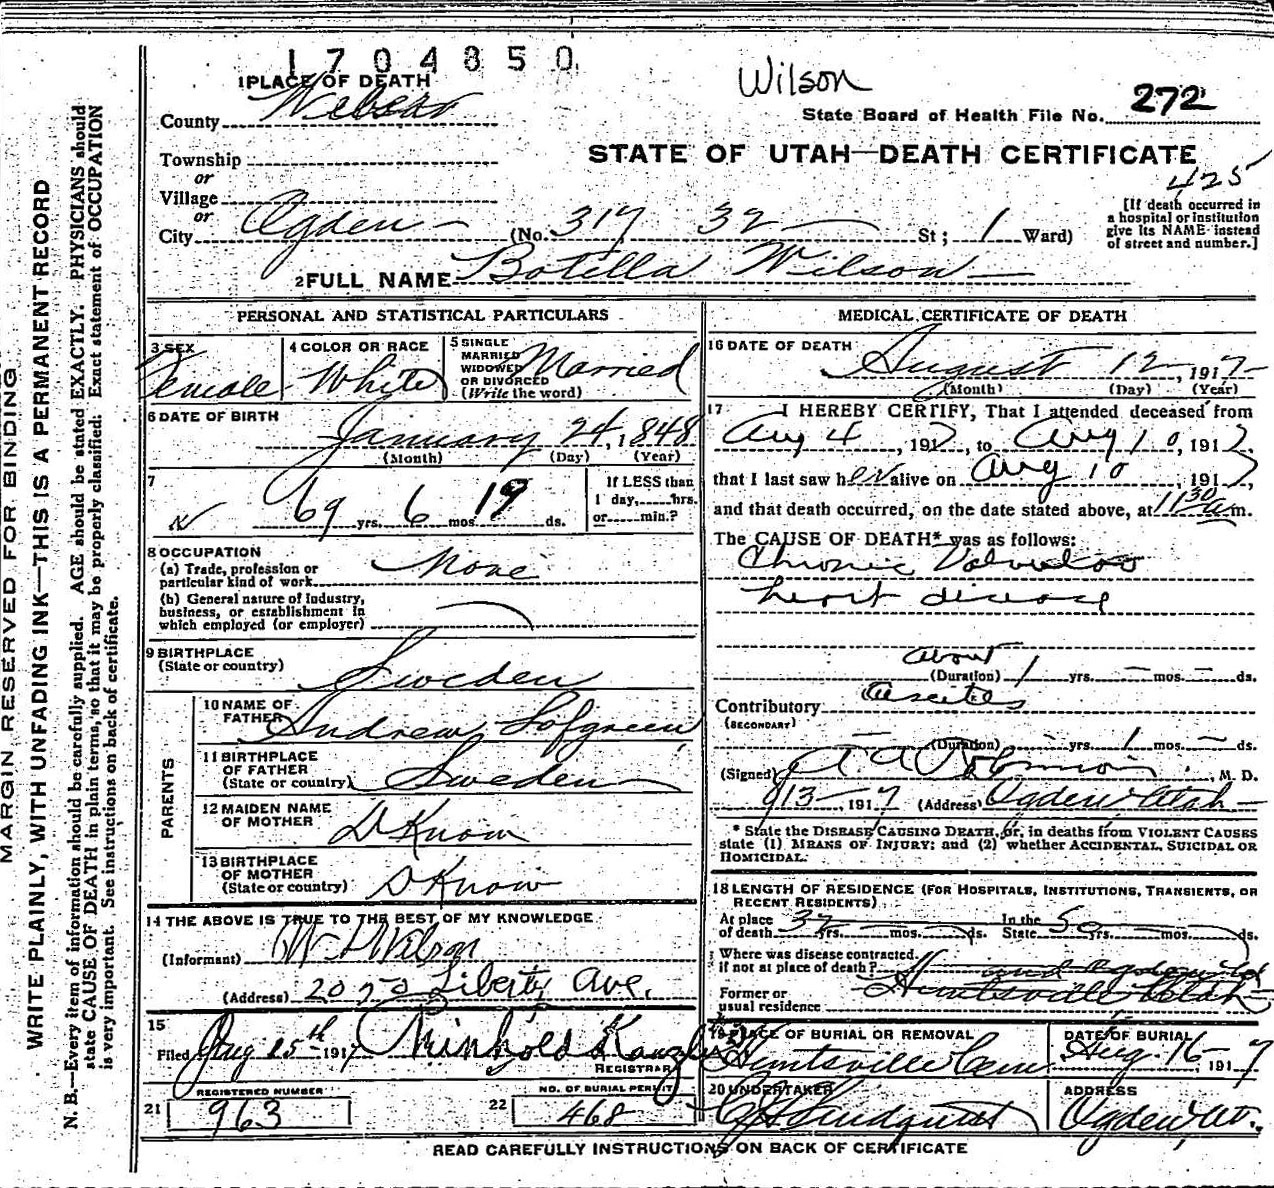 1704850
Wilson
1 PLACE OF DEATH
County Weber
State Board of Health File No. 272
Township
or
Village
or
City Ogden (No. 317 32 St; 1 Ward)
STATE OF UTAH—DEATH CERTIFICATE
425
[If death occurred in
a hospital or institution
give its NAME instead
of street and number.]
2 FULL NAME Botilla Wilson
PERSONAL AND STATISTICAL PARTICULARS
3 SEX
Female
4 COLOR OR RACE
White
5 SINGLE
MARRIED
WIDOWED
OR DIVORCED
(Write the word)
Married
6 DATE OF BIRTH
January 24, 1848
(Month) (Day) (Year)
7
69 yrs. 6 mos. 19 ds.
If LESS than
1 day, hrs.
or min.?
8 OCCUPATION
(a) Trade, profession or
particular kind of work None
(b) General nature of industry,
business, or establishment in
which employed (or employer)
9 BIRTHPLACE
(State or country) Sweden
PARENTS
10 NAME OF
FATHER Andrew Lofgreen
11 BIRTHPLACE
OF FATHER
(State or country) Sweden
12 MAIDEN NAME
OF MOTHER D Know
13 BIRTHPLACE
OF MOTHER
(State or country) D Know
14 THE ABOVE IS TRUE TO THE BEST OF MY KNOWLEDGE
(Informant) W Wilson
(Address) 2050 Liberty Ave.
15
Filed Aug 15th 1917 Rinhold Kanzler
REGISTRAR
REGISTERED NUMBER
21 963
NO. OF BURIAL PERMIT
22 468
MEDICAL CERTIFICATE OF DEATH
16 DATE OF DEATH
August 12, 1917
(Month) (Day) (Year)
17 I HEREBY CERTIFY, That I attended deceased from
Aug 4, 1917, to Aug 10, 1917,
that I last saw her alive on Aug 10, 1917,
and that death occurred, on the date stated above, at 11 30 m.
The CAUSE OF DEATH* was as follows:
Chronic Valvular
heart disease
about
(Duration) 1 yrs. mos. ds.
Contributory Ascites
(SECONDARY)
(Duration) yrs. 1 mos. ds.
(Signed) Robinson, M. D.
8/13 1917 (Address) Ogden Utah
* State the DISEASE CAUSING DEATH, or, in deaths from VIOLENT CAUSES
state (1) MEANS OF INJURY; and (2) whether ACCIDENTAL, SUICIDAL OR
HOMICIDAL.
18 LENGTH OF RESIDENCE (FOR HOSPITALS, INSTITUTIONS, TRANSIENTS, OR
RECENT RESIDENTS)
At place
of death 32 yrs. mos. ds.
In the
State 50 yrs. mos. ds.
Where was disease contracted.
if not at place of death?
Former or
usual residence Huntsville Utah
19 PLACE OF BURIAL OR REMOVAL
Huntsville Cem
DATE OF BURIAL
Aug. 16, 1917
20 UNDERTAKER
Sundquist
ADDRESS
Ogden, Ut.
READ CAREFULLY INSTRUCTIONS ON BACK OF CERTIFICATE
MARGIN RESERVED FOR BINDING
WRITE PLAINLY, WITH UNFADING INK—THIS IS A PERMANENT RECORD
N. B.—Every item of information should be carefully supplied. AGE should be stated EXACTLY. PHYSICIANS should
state CAUSE OF DEATH in plain terms, so that it may be properly classified. Exact statement of OCCUPATION
is very important. See instructions on back of certificate.